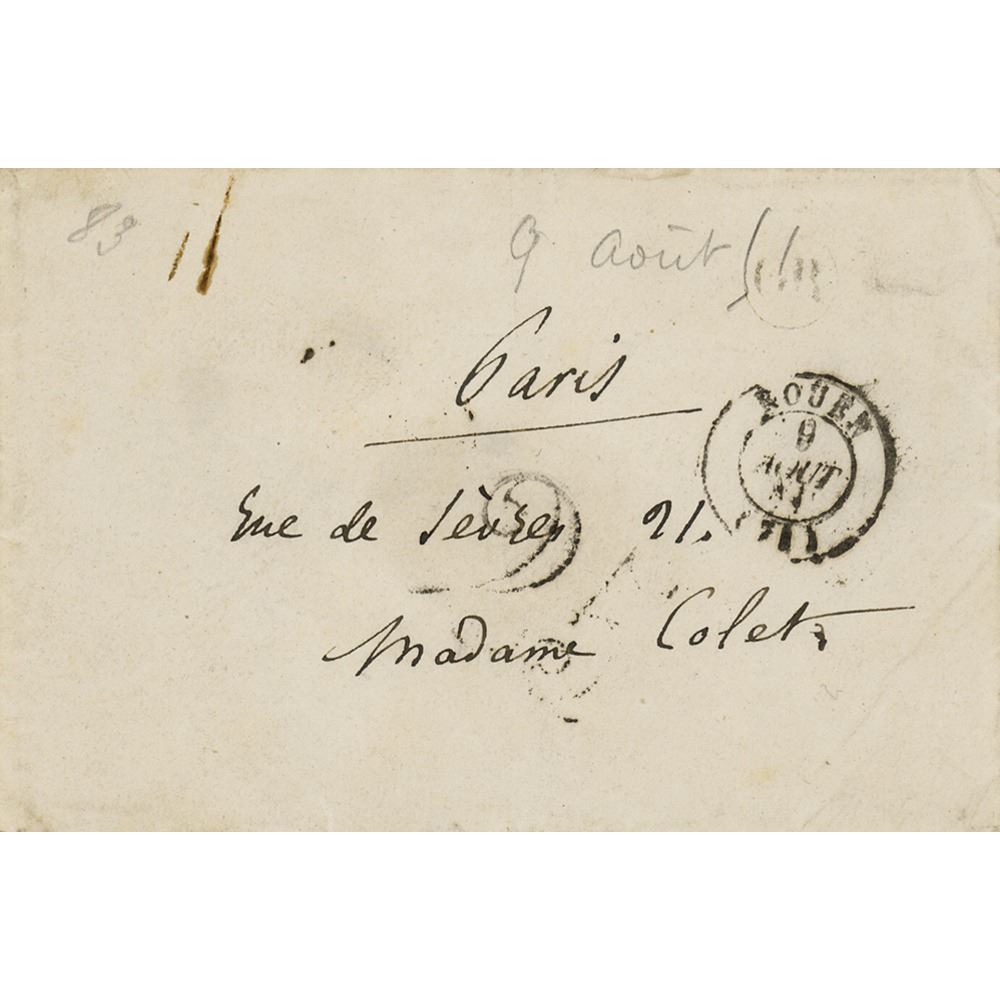 83
9 Août
Paris
ROUEN
9
AOUT
(74)
Rue de Sèvres 21.
Madame Colet.